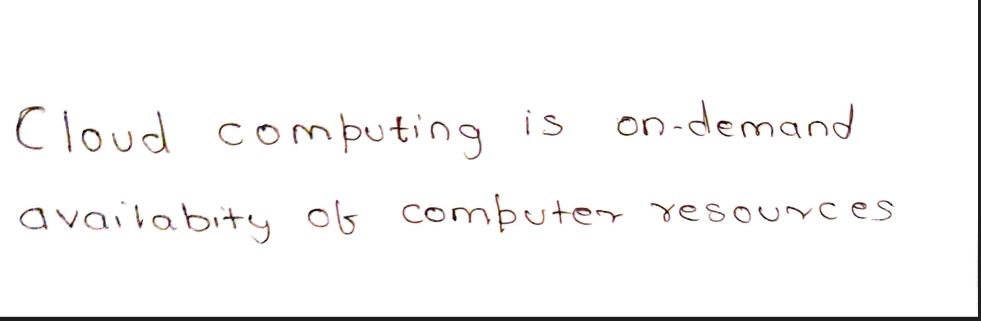 Cloud computing is on-demand
availabity of computer resources